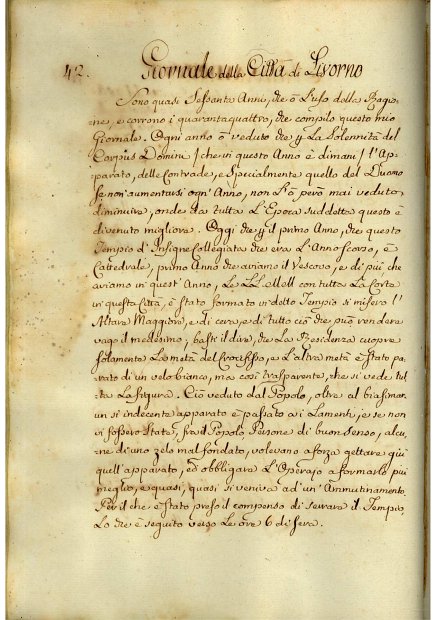 42. Giornale della Città di Livorno
Sono quasi Sessanta Anni, che ò l'uso della Ragio-
ne, e corrono i quarantaquattro, che compilo questo mio
Giornale. Ogni anno ò veduto che p. la Solennità del
Corpus Domini [che in questo Anno è dimani] l'Ap-
parato, delle Contrade, e Specialmente quello del Duomo
se non' aumentarsi ogn' Anno, non l'ò però mai veduto
diminuire, onde da tutta l'Epoca suddetta questo è
divenuto migliore. Oggi che p. il primo Anno, che questo
Tempio d'Insigne Collegiata che era l'Anno scorso, è
Cattedrale, primo Anno che aviamo il Vescovo, e di più che
aviamo in quest' Anno, Le LL. MM. con tutta La Corte
in questa Città, è stato formato in detto Tempio si misero l'
Altare Maggiore, e di cera, e di tutto ciò che può rendere
vago il medesimo, basti il dire, che La Residenza cuopre
solamente La metà del Crocifisso, e l'altra metà è stato pa-
rato di un velo bianco, ma così trasparente, che si vede tut-
ta La figura. Ciò veduto dal Popolo, oltre al biasimar
un si indecente apparato è passato ai Lamenti, e se non
vi fossero State, fra il Popolo Persone di buon senso, alcu-
ne di uno zelo mal fondato, volevano a forza gettare giù
quell' apparato, ed obbligare L'Operajo a formarlo più
meglio, e quasi, quasi si veniva ad' un' Ammutinamento.
Per il che è stato preso il compenso di serrare il Tempio,
Lo che è seguito verso Le ore 6 di sera.